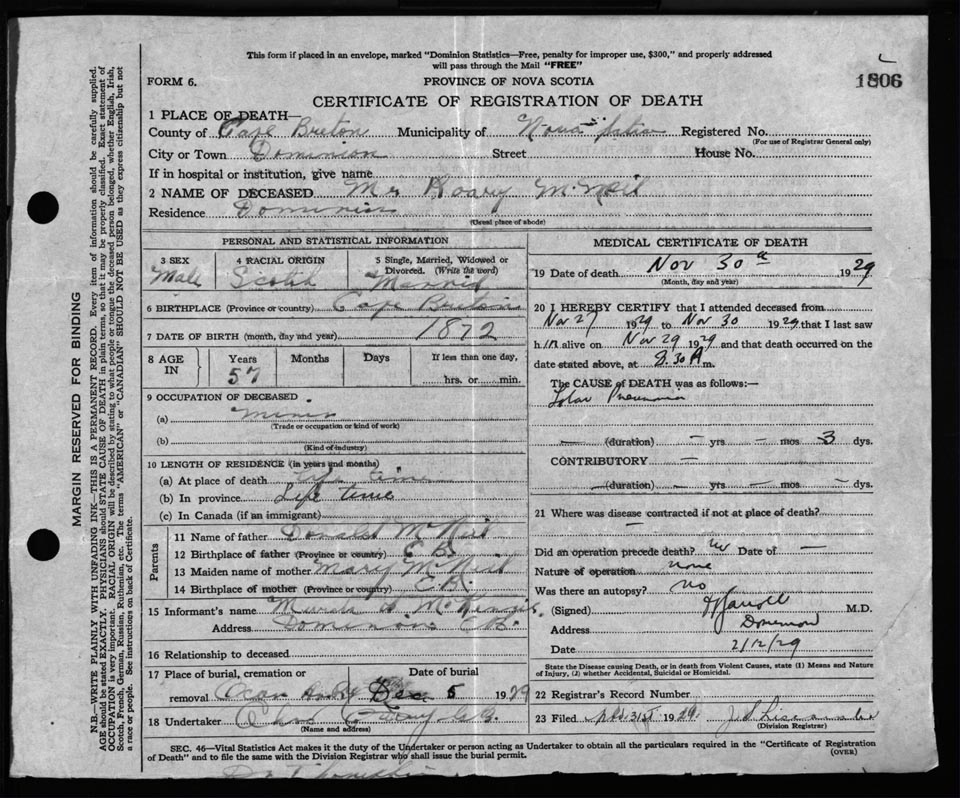 This form if placed in an envelope, marked "Dominion Statistics—Free, penalty for improper use, $300," and properly addressed
will pass through the Mail "FREE"
FORM 6. PROVINCE OF NOVA SCOTIA 1806
CERTIFICATE OF REGISTRATION OF DEATH
1 PLACE OF DEATH—
County of Cape Breton Municipality of Nova Registered No.
(For use of Registrar General only)
City or Town Dominion Street House No.
If in hospital or institution, give name
2 NAME OF DECEASED Mr Roary McNeil
Residence Dominion
(Usual place of abode)
PERSONAL AND STATISTICAL INFORMATION
3 SEX 4 RACIAL ORIGIN 5 Single, Married, Widowed or
Divorced. (Write the word)
Male Scotch Married
6 BIRTHPLACE (Province or country) Cape Breton
7 DATE OF BIRTH (month, day and year) 1872
8 AGE IN Years Months Days If less than one day,
57 hrs. or min.
9 OCCUPATION OF DECEASED
(a) Miner
(Trade or occupation or kind of work)
(b)
(Kind of industry)
10 LENGTH OF RESIDENCE (in years and months)
(a) At place of death Life time
(b) In province Life time
(c) In Canada (if an immigrant)
Parents
11 Name of father Donald McNeil
12 Birthplace of father (Province or country) C B
13 Maiden name of mother Mary McNeil
14 Birthplace of mother (Province or country) C.B.
15 Informant's name McKenzie
Address Dominion C.B.
16 Relationship to deceased
17 Place of burial, cremation or Date of burial
removal Dec 5 1929
18 Undertaker Curry
(Name and address)
MEDICAL CERTIFICATE OF DEATH
19 Date of death Nov 30th 1929
(Month, day and year)
20 I HEREBY CERTIFY that I attended deceased from
Nov 27 1929 to Nov 30 1929 that I last saw
h im alive on Nov 29 1929 and that death occurred on the
date stated above, at 8.30 A m.
The CAUSE of DEATH was as follows:—
Lobar Pneumonia
— (duration) — yrs — mos 3 dys.
CONTRIBUTORY —
— (duration) — yrs — mos — dys.
21 Where was disease contracted if not at place of death?
—
Did an operation precede death? no Date of —
Nature of operation none
Was there an autopsy? no
(Signed) M.D.
Address Dominion
Date 2/12/29
State the Disease causing Death, or in death from Violent Causes, state (1) Means and Nature
of Injury, (2) whether Accidental, Suicidal or Homicidal.
22 Registrar's Record Number
23 Filed 31st 1929
(Division Registrar)
SEC. 46—Vital Statistics Act makes it the duty of the Undertaker or person acting as Undertaker to obtain all the particulars required in the "Certificate of Registration
of Death" and to file the same with the Division Registrar who shall issue the burial permit. (OVER)
MARGIN RESERVED FOR BINDING
N.B.—WRITE PLAINLY WITH UNFADING INK—THIS IS A PERMANENT RECORD. Every item of information should be carefully supplied.
AGE should be stated EXACTLY. PHYSICIANS should STATE CAUSE OF DEATH in plain terms, so that it may be properly classified. Exact statement of
OCCUPATION is very important. RACIAL ORIGIN will be described by stating to what people or tongue the deceased person belonged, whether English, Irish,
Scotch, French, German, Russian, Ruthenian, etc. The terms "AMERICAN" or "CANADIAN" SHOULD NOT BE USED as they express citizenship but not
a race or people. See instructions on back of Certificate.